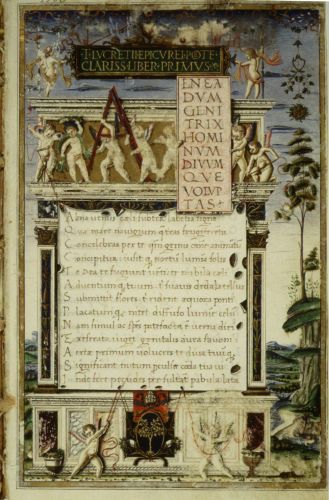 T·LVCRETII·EPICVREI·POTE
CLARISS·LIBER·PRIMVS·
A
ENEA
DVM
GENI
TRIX
HOMI
NVM
DIVVM
QVE
VOLVP
TAS
Alma subter labentia signa
Qua mare navigerum terras frugiferentis
Concelebras per te genus omne animantum
Concipitur lumina solis
Te Dea te fugiunt venti te nubila caeli
Adventumq tuum suavis daedala tellus
Submittit flores rident aequora ponti
Placatumq nitet diffuso lumine
Nam simul ac species patefacta verna diei
viget genitalis aura favoni
Aeriae primum volucres te diva tuumq
Significant initum perculsae corda tua vi
Inde ferae pecudes persultant pabula laeta